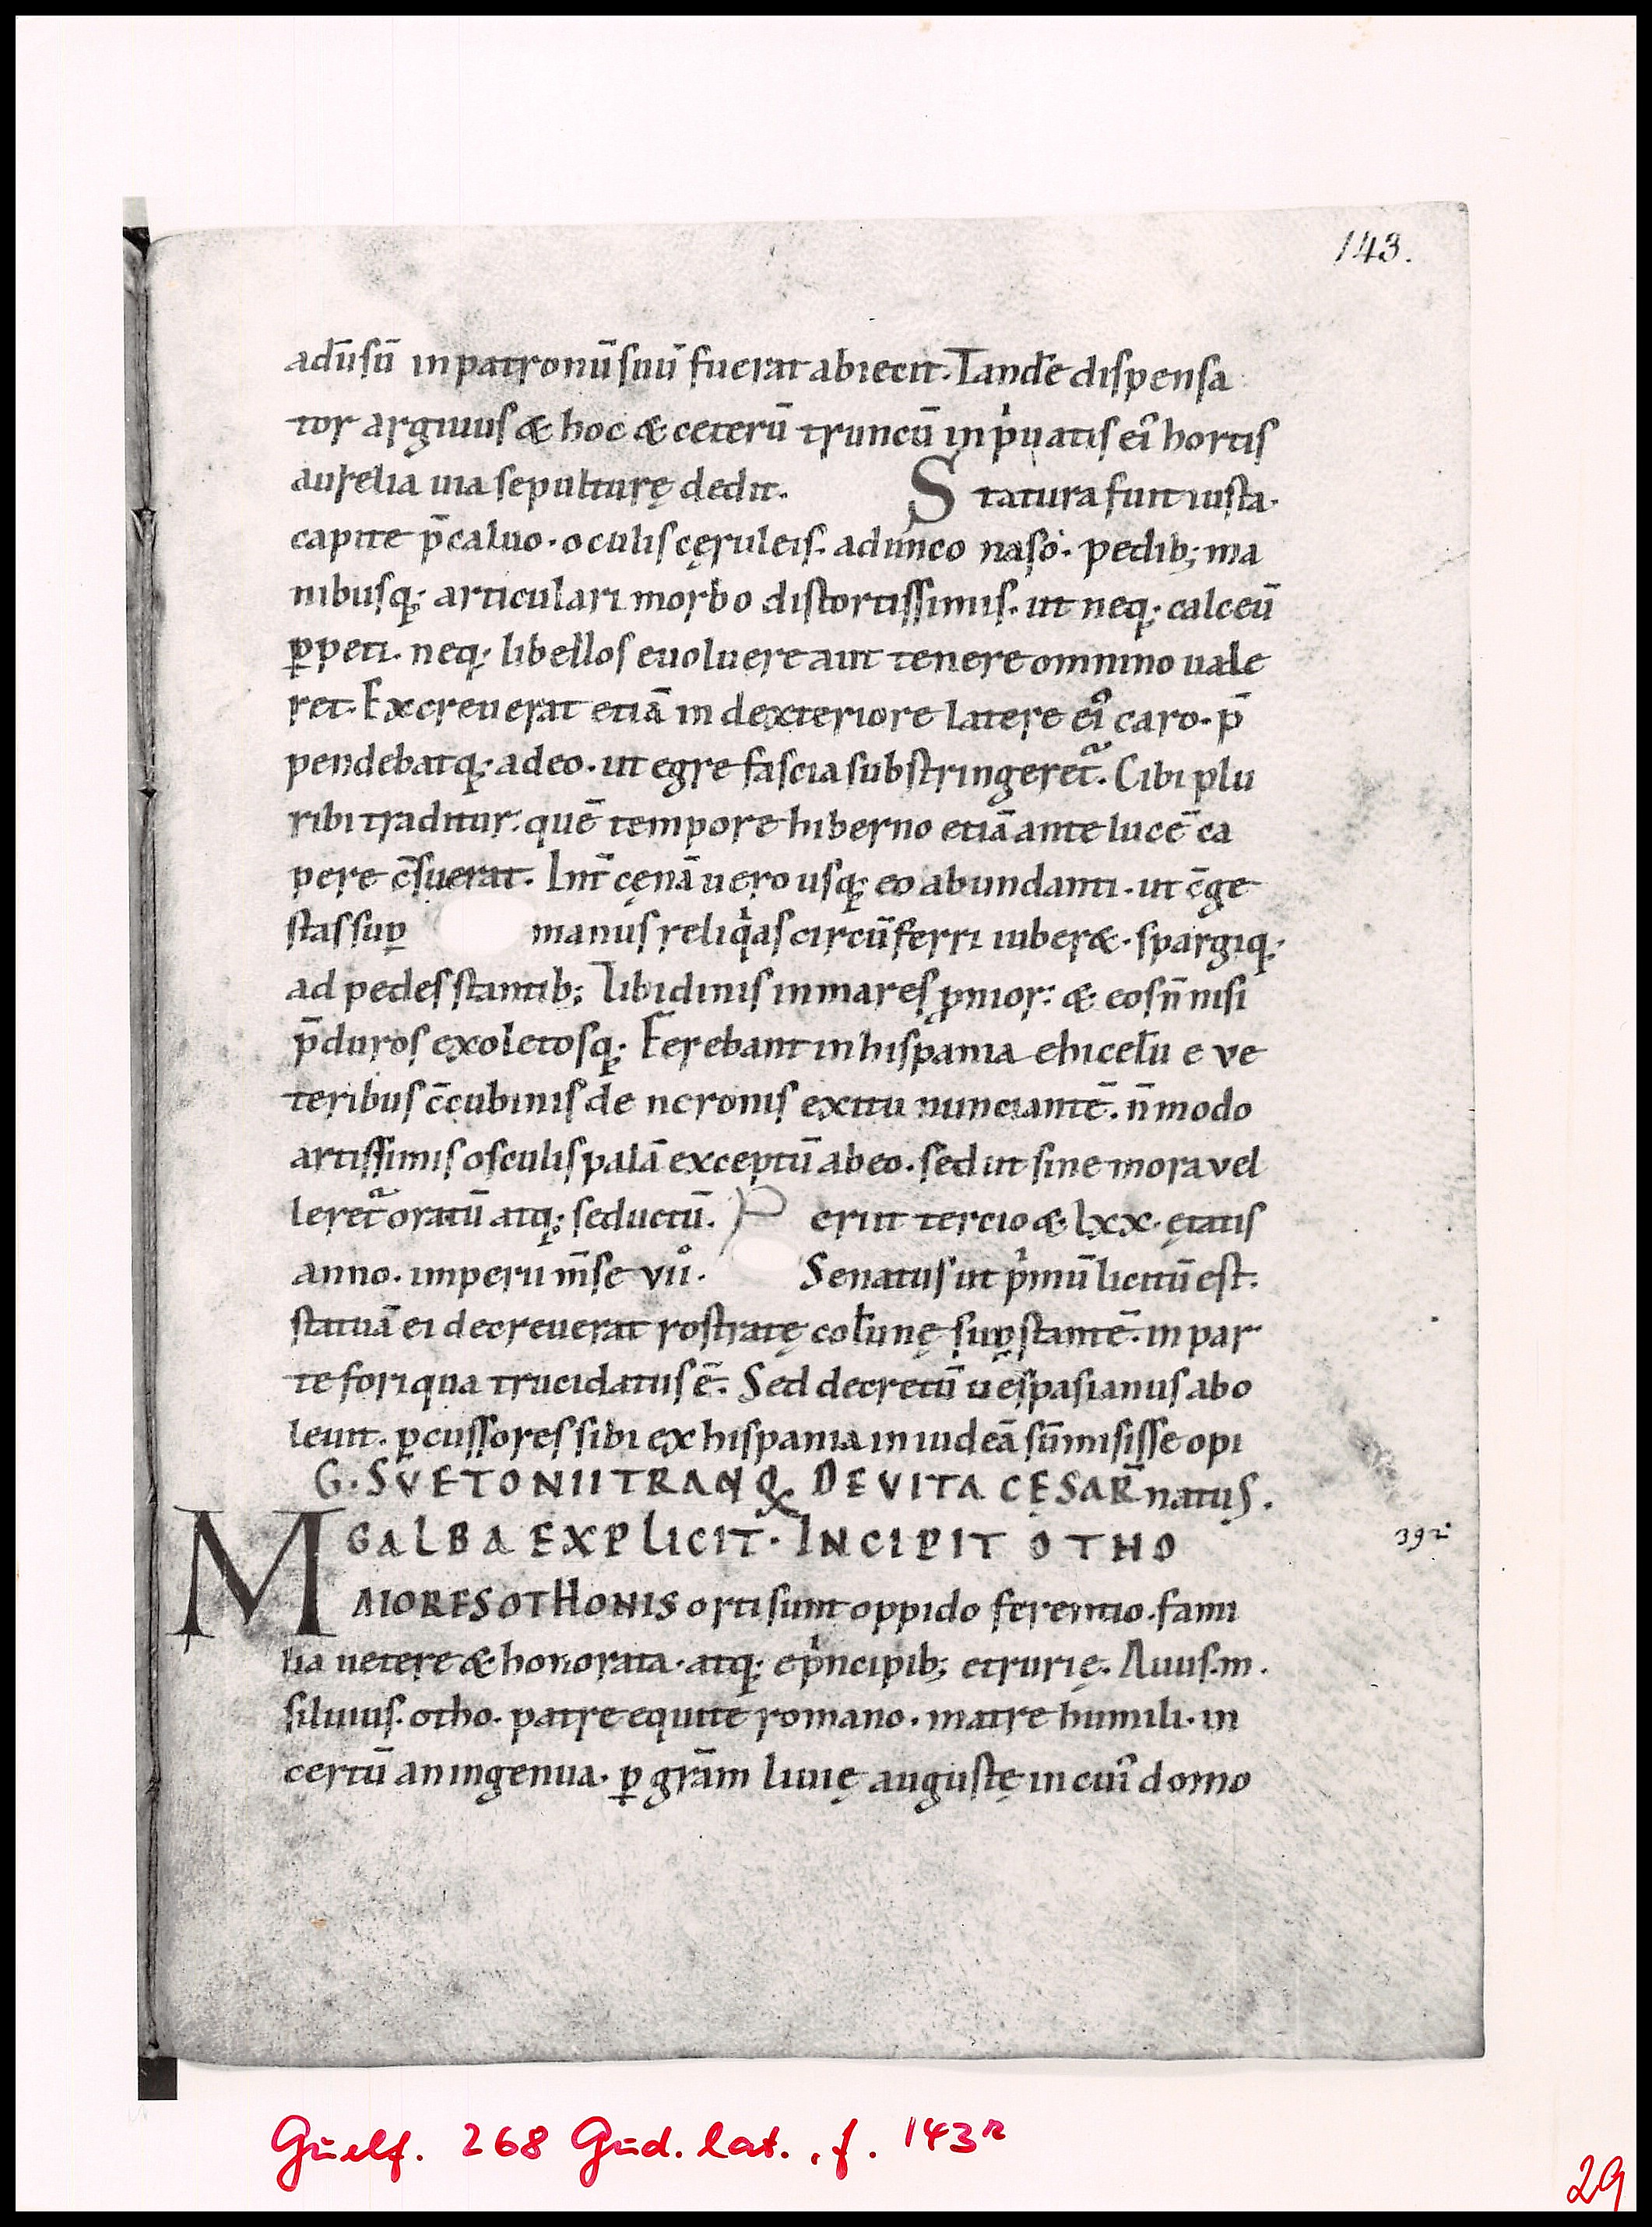 143.
adu̅su̅ in patronu̅ suu̅ fuerat abiecit. Tande̅ dispensa
tor argiuus & hoc & ceteru̅ truncu̅ in pͥuatis ei᾽ hortis
aurelia uia sepulturę dedit. Statura fuit iusta.
capite p̅caluo. oculis cęruleis. adunco naso. pedib; ma
nibusq; articulari morbo distortissimis. ut neq; calceu̅
ꝑpeti. neq; libellos euoluere aut tenere omnino uale
ret. Excreuerat etia̅ in dexteriore latere ei᾽ caro. p̅
pendebatq; adeo. ut egre fascia substringeret᷑. Cibi plu
ribi traditur. que̅ tempore hiberno etia̅ ante luce̅ ca
pere c̅suerat. Int̅ cęna̅ uero usq; eo abundanti. ut c̅ge
stas suꝑ manus reliqͥas circu̅ferri iuber&. spargiq;
ad pedes stantib; libidinis in mares ꝓnior: & eos n̅ nisi
p̅duros exoletosq; Ferebant in hispania ehicelu̅ e ve
teribus c̅cubinis de neronis exitu nunciante̅. n̅ modo
artissimis osculis pala̅ exceptu̅ ab eo. sed ut sine mora vel
leret᷑ oratu̅ atq; seductu̅. Periit tercio & lxx. ętatis
anno. imperii m̅se viiͦ. Senatus ut pͥmu̅ licitu̅ est.
statua̅ ei decreuerat rostratę colu̅nę suꝑstante̅. in par
te fori qua trucidatus e̅. Sed decretu̅ uespasianus abo
leuit. ꝑcussores sibi ex hispania in iudea̅ su̅misisse opi
G. SVETONII TRANQ DE VITA CĘSAR̅ natus.
GALBA EXPLICIT. INCIPIT OTHO
392
MAIORES OTHONIS orti sunt oppido ferentio. fami
lia uetere & honorata. atq; e pͥncipib; etrurię. Auus. m.
siluius. otho. patre equite romano. matre humili. in
certu̅ an ingenua. ꝑ gra̅m liuię augustę in cui᾽ domo
Guelf. 268 Gud. lat., f. 143r
29